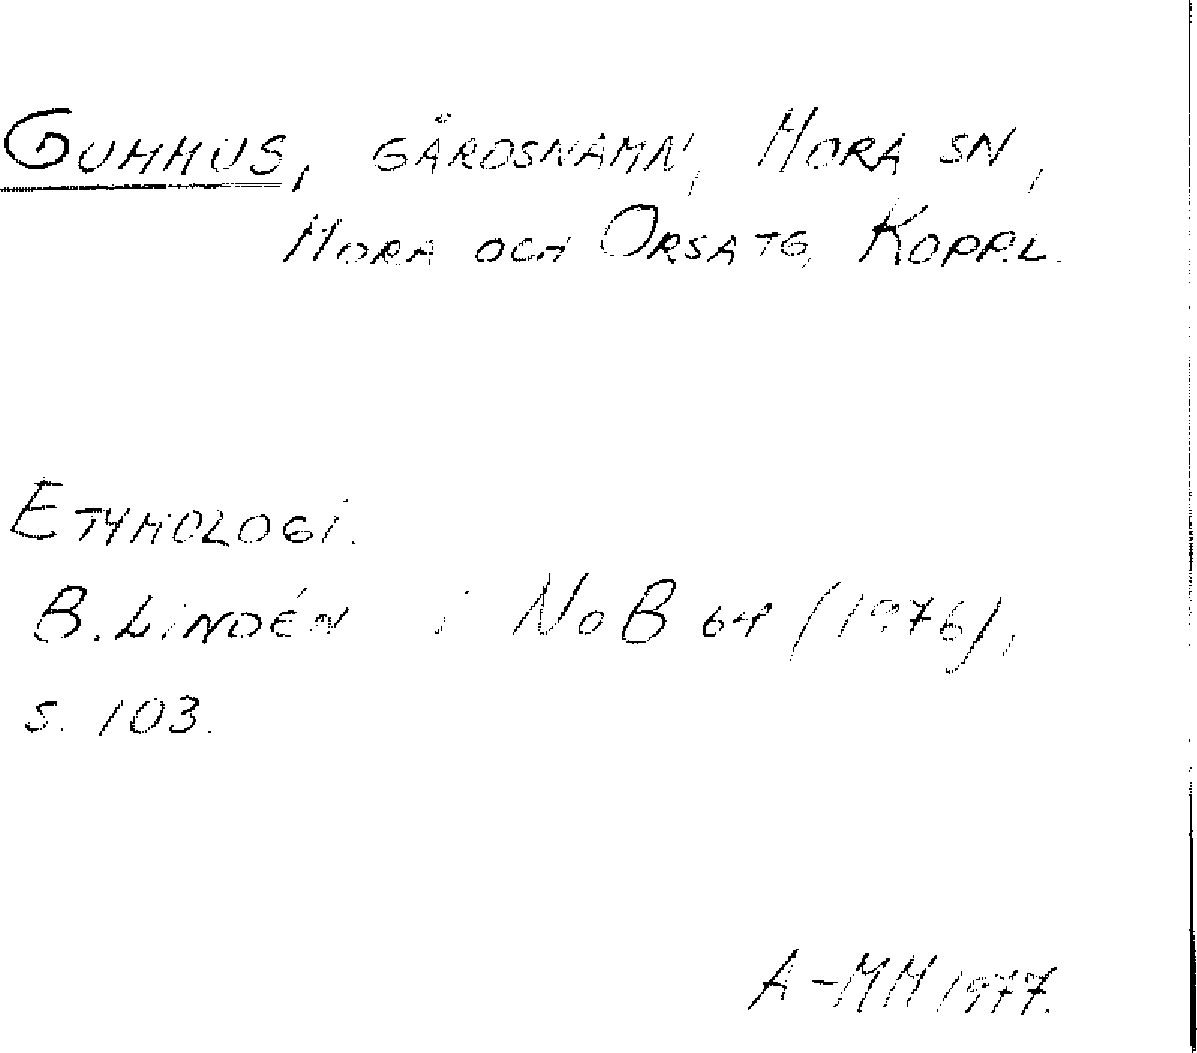 GUMMUS, GÅRDSNAMN, MORA SN,
MORA OCH ORSA TG, KOPP.L.
ETYMOLOGI.
B. LINDÉN i NoB 64 (1976),
S. 103.
A-MM 1977.